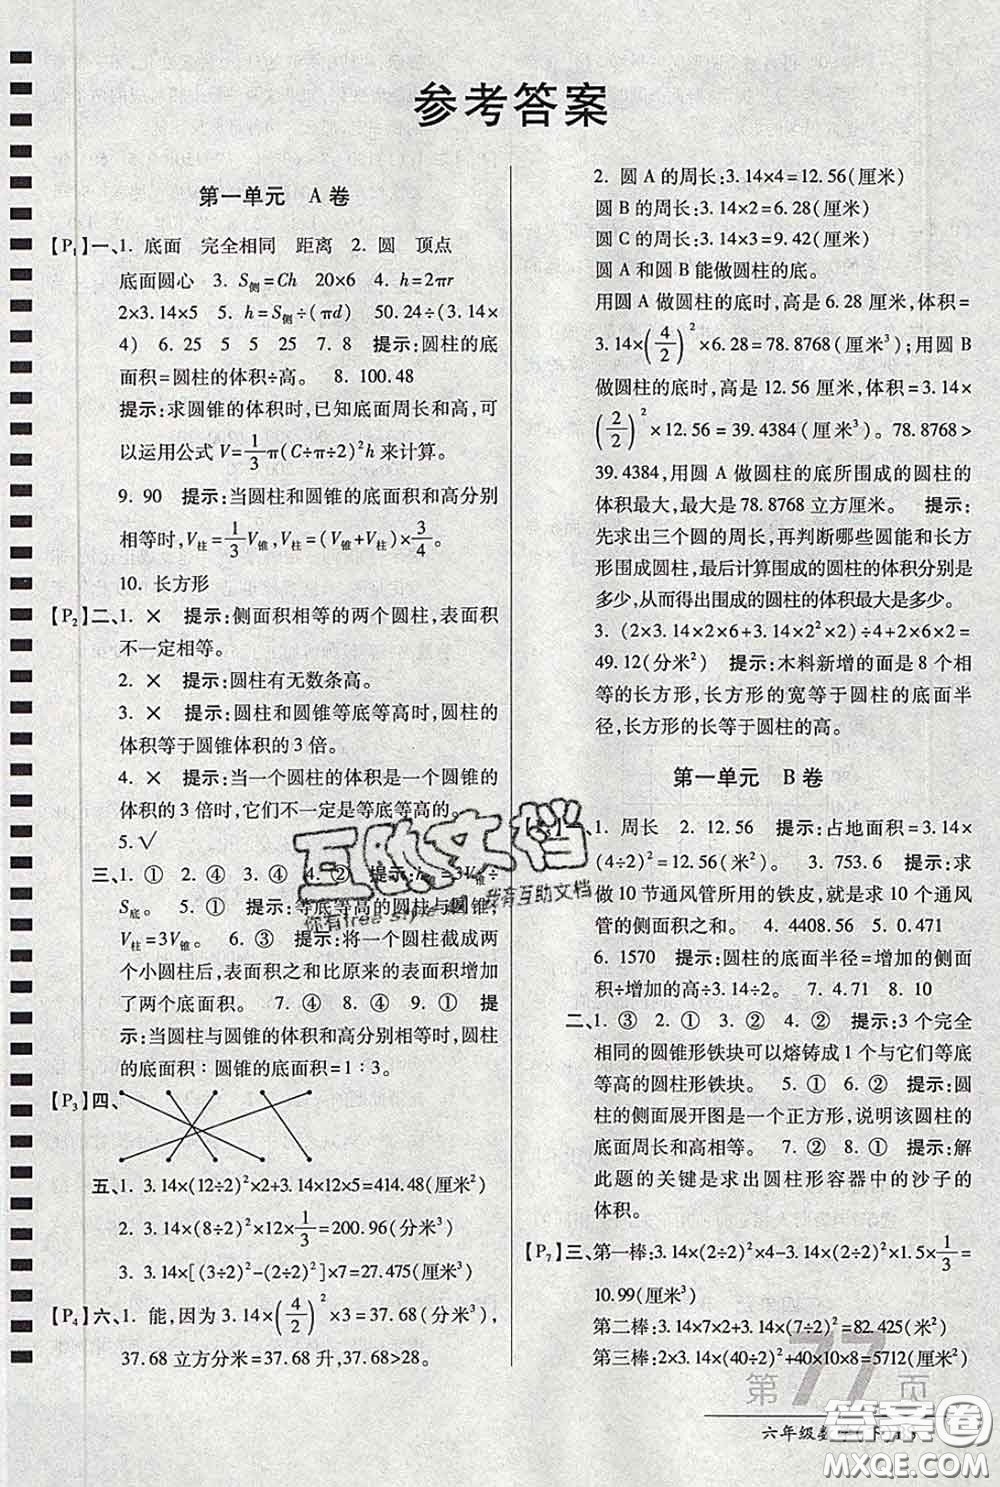 参考答案
第一单元 A 卷
【P1】一、1. 底面 完全相同 距离 2. 圆 顶点
底面圆心 3. S侧=Ch 20×6 4. h=2πr
2×3.14×5 5. h=S侧÷(πd) 50.24÷(3.14×
4) 6. 25 5 5 25 7. 8 提示:圆柱的底
面积=圆柱的体积÷高。 8. 100.48
提示:求圆锥的体积时,已知底面周长和高,可
以运用公式 V=1/3π(C÷π÷2)²h 来计算。
9. 90 提示:当圆柱和圆锥的底面积和高分别
相等时,V柱=1/3V锥,V柱=(V锥+V柱)×3/4。
10. 长方形
【P2】二、1. × 提示:侧面积相等的两个圆柱,表面积
不一定相等。
2. × 提示:圆柱有无数条高。
3. × 提示:圆柱和圆锥等底等高时,圆柱的
体积等于圆锥体积的 3 倍。
4. × 提示:当一个圆柱的体积是一个圆锥的
体积的 3 倍时,它们不一定是等底等高的。
5. √
三、1. ① 2. ④ 3. ④ 4. ② 提示:h锥=3V锥÷
S底。 5. ① 提示:等底等高的圆柱与圆锥,
V柱=3V锥。 6. ③ 提示:将一个圆柱截成两个
小圆柱后,表面积之和比原来的表面积增加
了两个底面积。 7. ④ 8. ④ 9. ① 提
示:当圆柱与圆锥的体积和高分别相等时,圆柱
的底面积∶圆锥的底面积=1∶3。
【P3】四、
五、1. 3.14×(12÷2)²×2+3.14×12×5=414.48(厘米²)
2. 3.14×(8÷2)²×12×1/3=200.96(分米³)
3. 3.14×[(3÷2)²-(2÷2)²]×7=27.475(厘米³)
【P4】六、1. 能,因为 3.14×(4/2)²×3=37.68(分米³),
37.68 立方分米=37.68 升,37.68>28。
2. 圆 A 的周长:3.14×4=12.56(厘米)
圆 B 的周长:3.14×2=6.28(厘米)
圆 C 的周长:3.14×3=9.42(厘米)
圆 A 和圆 B 能做圆柱的底。
用圆 A 做圆柱的底时,高是 6.28 厘米,体积=
3.14×(4/2)²×6.28=78.8768(厘米³);用圆 B
做圆柱的底时,高是 12.56 厘米,体积=3.14×
(2/2)²×12.56=39.4384(厘米³)。78.8768>
39.4384,用圆 A 做圆柱的底所围成的圆柱的
体积最大,最大是 78.8768 立方厘米。 提示:
先求出三个圆的周长,再判断哪些圆能和长方
形围成圆柱,最后计算围成的圆柱的体积分别是
多少,从而得出围成的圆柱的体积最大是多少。
3. (2×3.14×2×6+3.14×2²×2)÷4+2×6×2=
49.12(分米²) 提示:木料新增的面是 8 个相
等的长方形,长方形的宽等于圆柱的底面半
径,长方形的长等于圆柱的高。
第一单元 B 卷
一、1. 周长 2. 12.56 提示:占地面积=3.14×
(4÷2)²=12.56(米²)。 3. 753.6 提示:求
做 10 节通风管所用的铁皮,就是求 10 个通风
管的侧面积之和。 4. 4408.56 5. 0.471
6. 1570 提示:圆柱的底面半径=增加的侧面
积÷增加的高÷3.14÷2。 7. 4.71 8. 10
二、1. ③ 2. ① 3. ② 4. ② 提示:3 个完全
相同的圆锥形铁块可以熔铸成 1 个与它们等底
等高的圆柱形铁块。 5. ① 6. ② 提示:圆
柱的侧面展开图是一个正方形,说明该圆柱的
底面周长和高相等。 7. ② 8. ① 提示:解
此题的关键是求出圆柱形容器中的沙子的
体积。
【P7】三、第一棒:3.14×(2÷2)²×4-3.14×(2÷2)²×1.5×1/3=
10.99(厘米³)
第二棒:3.14×7×2+3.14×(7÷2)²=82.425(米²)
第三棒:2×3.14×(40÷2)²+40×10×8=5712(厘米²)
第77页
六年级数学
互助文档
你有free style,我有互助文档
答案卷
MXQE.COM